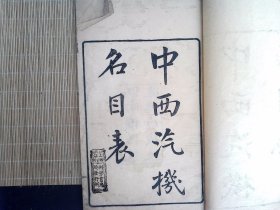 中西汽機
名目表